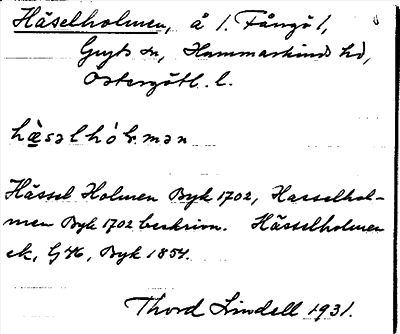 Häselholmen, å l. Fångö 1,
Gryts sn, Hammarkinds hd,
Östergötl. l.
hæ̀səlhól̀mən
Hässel Holmen Byk 1702, Hasselhol-
men Byk 1702 beskrivn. Hässelholmen
ek, Byk 1854.
Thord Lindell 1931.